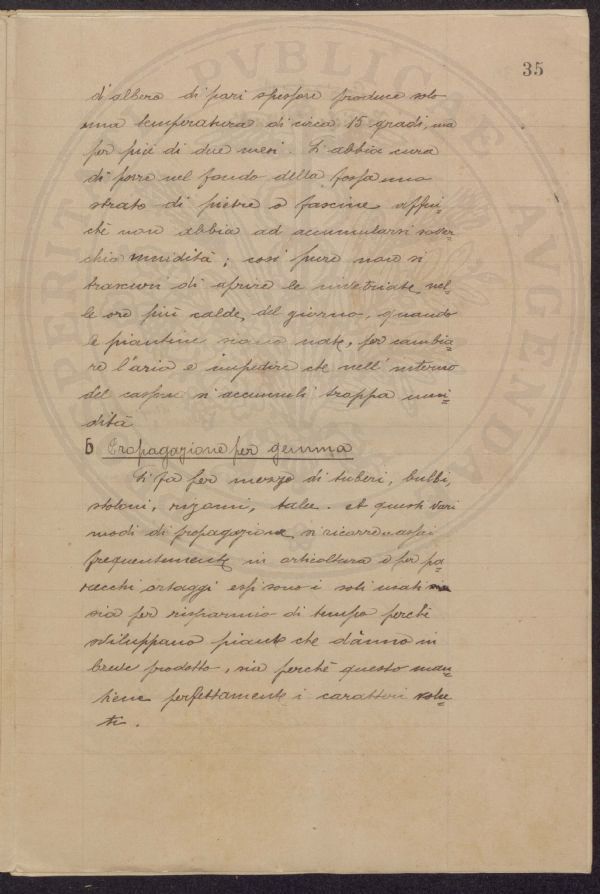 35
d'albero di pari spessore produce solo
una temperatura di circa 15 gradi, ma
per più di due mesi. Si abbia cura
di porre nel fondo della fossa uno
strato di pietre o fascine affin-
chè non abbia ad accumularsi sover-
chia umidità; così pure non si
trascuri di aprire le invetriate nel-
le ore più calde, del giorno, quando
le piantine siano nate, per cambia-
re l'aria e impedire che nell'interno
del cassone si accumuli troppa umi-
dità
b Propagazione per gemma
Si fa per mezzo di tuberi, bulbi,
stoloni, rizomi, talee. A questi vari
modi di propagazione, si ricorre assai
frequentemente in orticoltura e per pa-
recchi ortaggi essi sono i soli usati
sia per risparmio di tempo perchè
sviluppano piante che dànno in
breve prodotto, sia perchè questo man-
tiene perfettamente i caratteri volu-
ti.
PVBLICAE
AVGENDA
PERITA